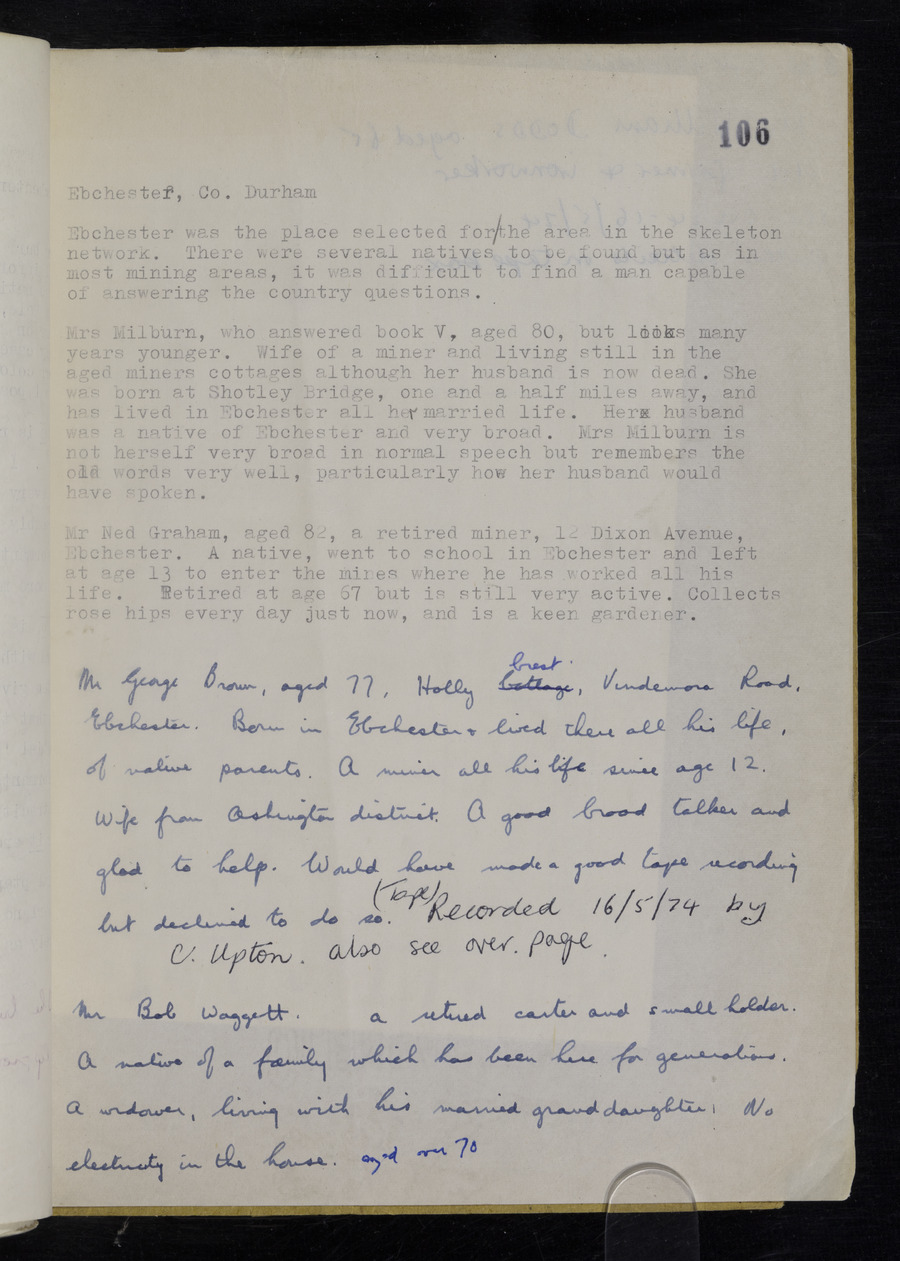 106
Ebchester, Co. Durham
Ebchester was the place selected for/the area in the skeleton
network. There were several natives to be found but as in
most mining areas, it was difficult to find a man capable
of answering the country questions.
Mrs Milburn, who answered book V, aged 80, but looks many
years younger. Wife of a miner and living still in the
aged miners cottages although her husband is now dead. She
was born at Shotley Bridge, one and a half miles away, and
has lived in Ebchester all her married life. Herx husband
was a native of Ebchester and very broad. Mrs Milburn is
not herself very broad in normal speech but remembers the
old words very well, particularly how her husband would
have spoken.
Mr Ned Graham, aged 82, a retired miner, 12 Dixon Avenue,
Ebchester. A native, went to school in Ebchester and left
at age 13 to enter the mines where he has worked all his
life. Retired at age 67 but is still very active. Collects
rose hips every day just now, and is a keen gardener.
Crest
Mr George Brown, aged 77, Holly Cottage, Vindemora Road,
Ebchester. Born in Ebchester & lived there all his life,
of native parents. A miner all his life since age 12.
Wife from Ashington district. A good broad talker and
glad to help. Would have made a good tape recording
(Tape)
but declined to do so. Recorded 16/5/74 by
C. Upton. also see over. page.
Mr Bob Waggett. a retired carter and small holder.
A native of a family which has been here for generations.
A widower, living with his married granddaughter. No
electricity in the house. aged over 70